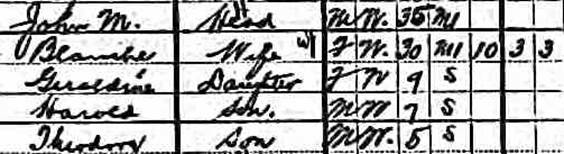 John M. Head M W. 35 M1
Blanche Wife W1 F W. 30 M1 10 3 3
Geraldine Daughter F W 9 S
Harold Son. M W 7 S
Theodore Son M W. 5 S